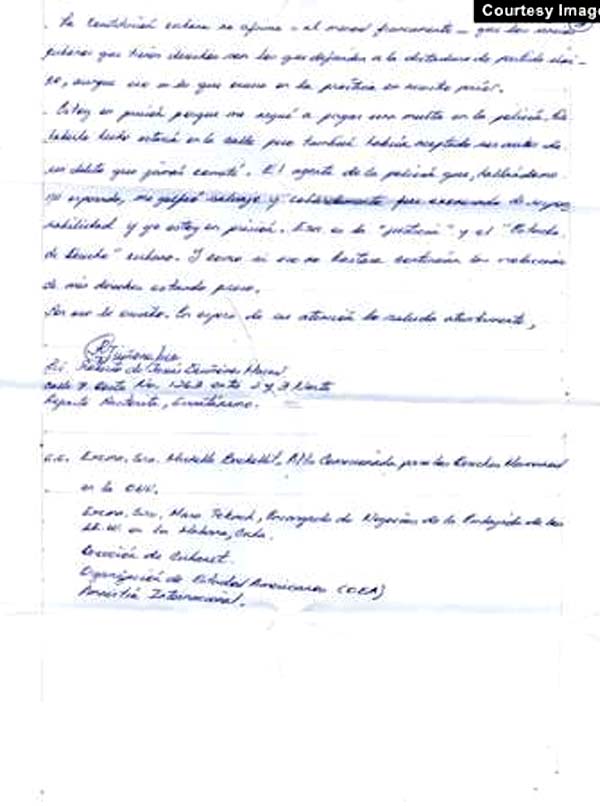 Courtesy Image
. La Constitución cubana no afirma - al menos francamente - que los únicos
cubanos que tienen derechos son los que defienden a la dictadura de partido úni-
co, aunque eso es lo que ocurre en la práctica en nuestro país.
. Estoy en prisión porque me negué a pagar una multa en la policía. De
haberlo hecho estaría en la calle pero también habría aceptado ser autor de
un delito que jamás cometí. El agente de la policía que, hallándome
yo esposado, me golpeó salvaje y cobardemente fue exonerado de respon
sabilidad y yo estoy en prisión. Esa es la "justicia" y el "Estado
de Derecho" cubano. Y como si eso no bastara continúan las violaciones
de mis derechos estando preso.
Por eso le escribo. En espera de su atención le saluda atentamente,
Lic. Roberto de Jesús Quiñones Haces
Calle 8 Oeste No. 1262 entre 2 y 3 Norte
Reparto Guantánamo.
c.c. Excma. Sra. Michelle Bachellet, Alta Comisionada para los Derechos Humanos
en la ONU.
Excma. Sra. Mara Tekach, Encargada de Negocios de la Embajada de los
EE.UU. en La Habana, Cuba.
Dirección de Cubanet.
Organización de Estados Americanos (OEA)
Amnistía Internacional.